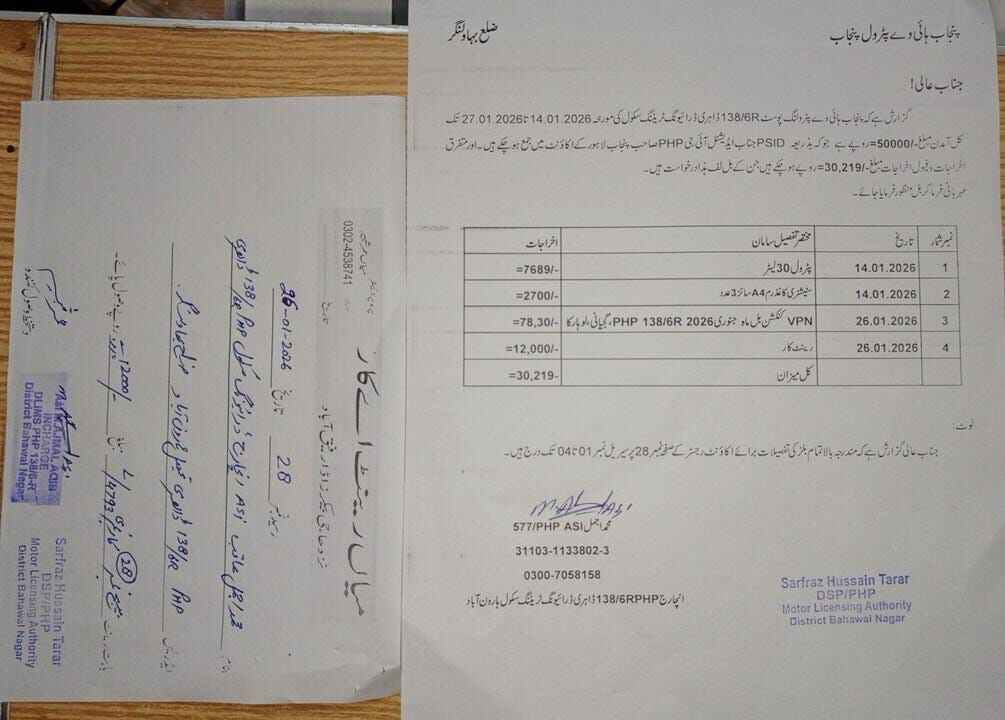 پنجاب ہائی وے پٹرول پنجاب
ضلع بہاولنگر
جناب عالی!
گزارش ہے کہ پنجاب ہائی وے پٹرولنگ پوسٹ 138/6R ڈاہری ڈرائیونگ ٹریننگ سکول کی مورخہ 14.01.2026 تا 27.01.2026 تک
کل آمدن مبلغ -/50000 روپے ہے جو کہ بذریعہ PSID جناب ایڈیشنل آئی جی PHP صاحب پنجاب لاہور کے اکاؤنٹ میں جمع ہو چکے ہیں۔ اور متفرق
اخراجات و فیول اخراجات مبلغ -/30,219 روپے ہو چکے ہیں جن کے بل لف ہذا درخواست ہیں۔
مہربانی فرما کر بل منظور فرمایا جائے۔
نمبر شمار تاریخ مختصر تفصیل سامان اخراجات
1 14.01.2026 پٹرول 30 لیٹر =7689/-
2 14.01.2026 سٹیشنری کاغذ رم A4 سائز 3 عدد =2700/-
3 26.01.2026 VPN کنکشن بل ماہ جنوری 2026 PHP 138/6R، گجیانی، لوہارکا =78,30/-
4 26.01.2026 رینٹ کار =12,000/-
کل میزان =30,219-
نوٹ:
جناب عالی گزارش ہے کہ مندرجہ بالا تمام بلز کی تفصیلات برائے اکاؤنٹ رجسٹر کے صفحہ نمبر 28 پر سیریل نمبر 01 تا 04 تک درج ہیں۔
محمد اجمل 577/PHP ASI
31103-1133802-3
0300-7058158
انچارج 138/6RPHP ڈاہری ڈرائیونگ ٹریننگ سکول ہارون آباد
Sarfraz Hussain Tarar
DSP/PHP
Motor Licensing Authority
District Bahawal Nagar
0302-4538741
میاں رینٹ اے کار
رسید نمبر 28 تاریخ 26-01-2026
نام محمد اجمل صاحب ASI انچارج ڈرائیونگ سکول 138/6R PHP ڈاہری
138/6R PHP ڈاہری تحصیل ہارون آباد ضلع بہاولنگر
مبلغ 12000/- روپے وصول پائے۔
28
دستخط وصول کنندہ
M. AJMAL ACIN
INCHARGE
DLIMS PHP 138/6-R
District Bahawal Nagar
Sarfraz Hussain Tarar
DSP/PHP
Motor Licensing Authority
District Bahawal Nagar